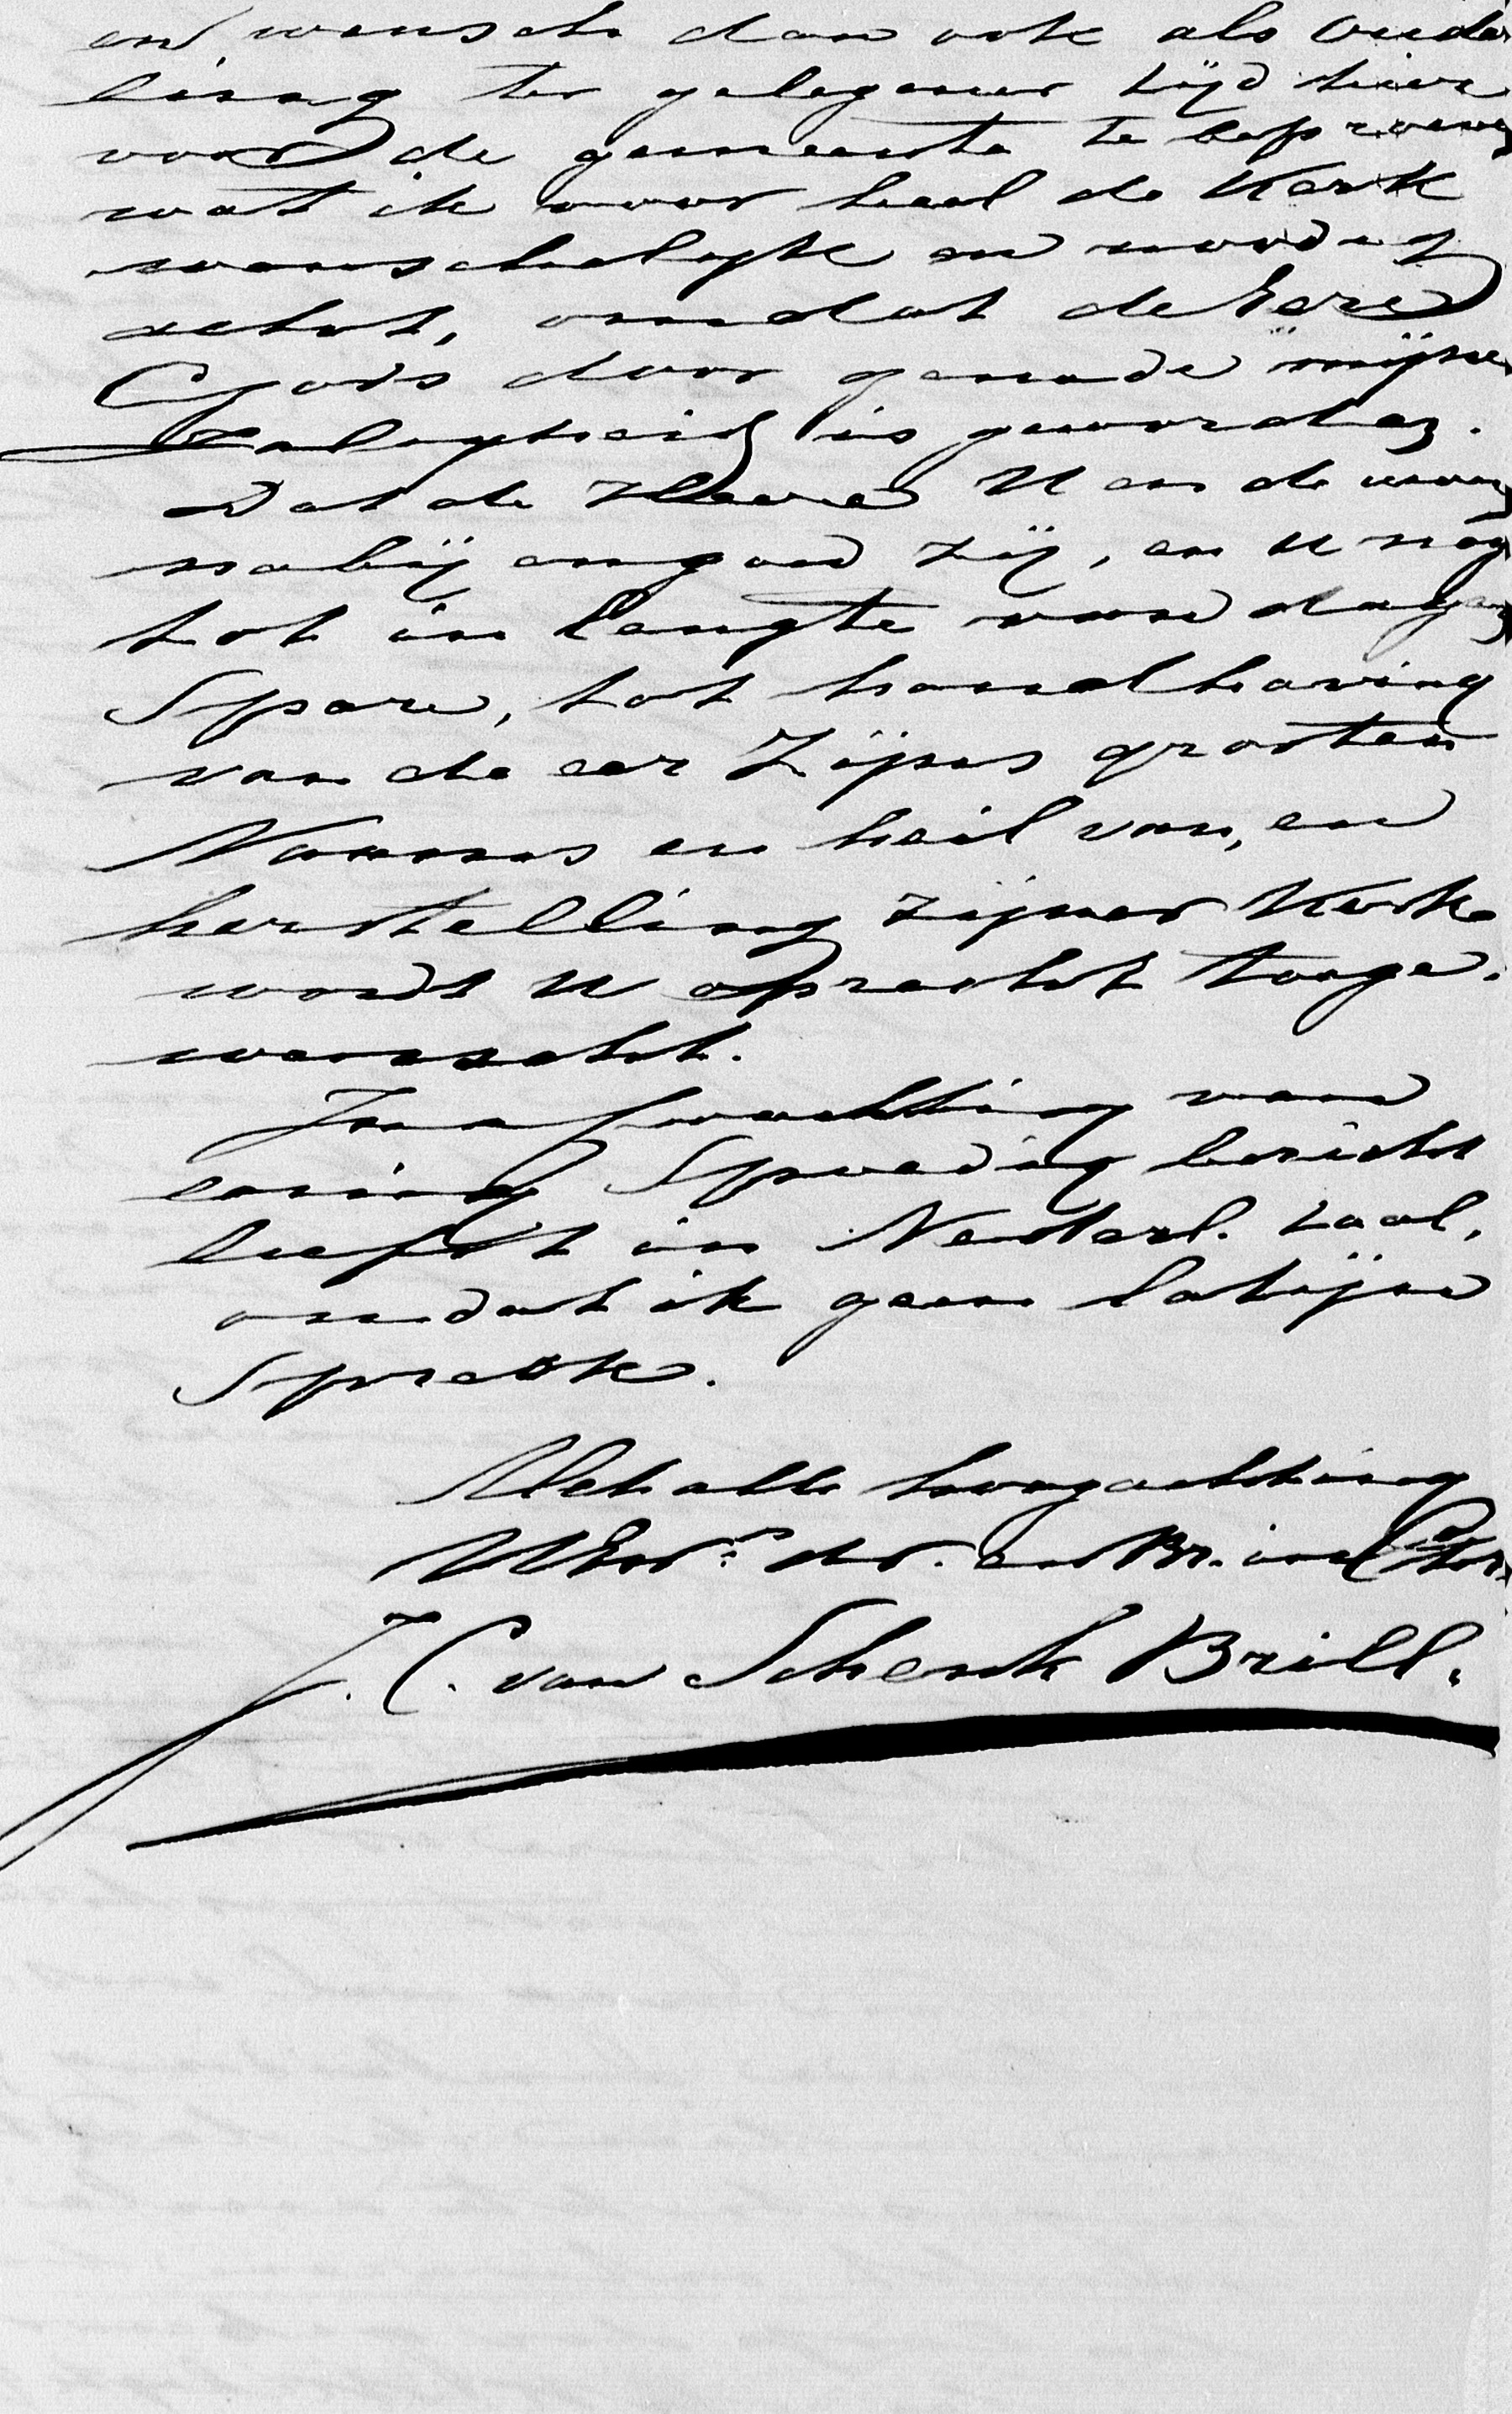 en wensch dan ook als Oude
ling ter gelegener tijd hier
voor de gemeente te
wat ik voor heel de Kerk
wenschelijk en noodig
acht, omdat de Eere
Gods door genade mijne
Zaligheid is geworden.
Dat de Heere U en de uwen
nabij en goed zij, en U nog
tot in lengte van dagen
Spare, tot handhaving
van de eer Zijns grooten
Naams en heil van, en
herstelling zijner Kerk
wordt U oprecht toege-
wenscht.
In afwachting van
eenig Spoedig bericht
liefst in Nederl. taal,
omdat ik geen latijn
Spreek.
Met alle hoogachting
UEerw. dr. en Br. in
J. C. van Schenk Brill.